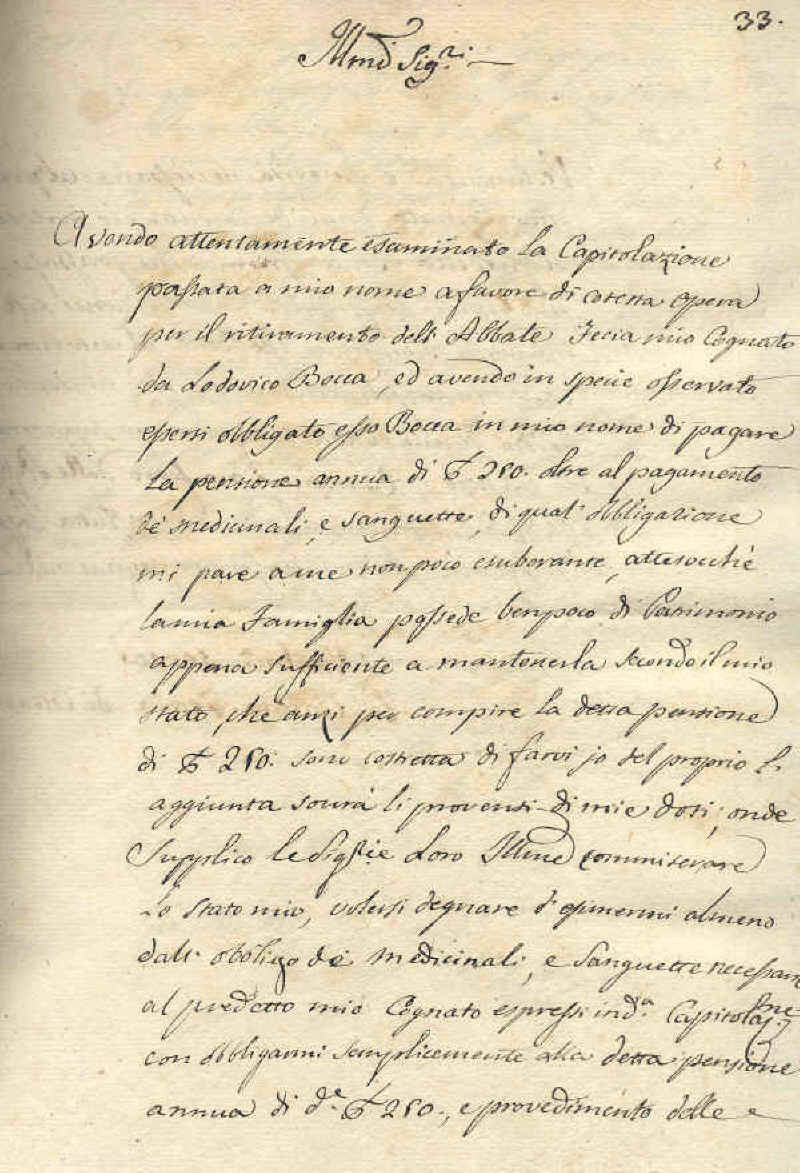 33.
Illmi Sigri.
Avendo attentamente esaminato la Capitolazione
passata a mio nome a favore di cotesta opera
per il ritiramento dell' Abbate Tecia mio Cognato
da Lodovico Bocca, ed avendo in specie osservato
essersi obbligato esso Bocca in mio nome di pagare
la pensione annua di £ 250. oltre al pagamento
de' medicinali, e sanguette, di qual' obbligazione
mi pare a me non poco esuberante, attesocchè
la mia Famiglia possede ben poco di Patrimonio
appena sufficiente a mantenerla secondo il mio
stato, che anzi per compire la detta pensione
di £ 250. sono costretta di farvi jo del proprio l'
aggiunta sovra li proventi di mie doti, onde
Supplico le Sigrie Loro Illme commiserare
lo stato mio, volersi degnare d'esimermi almeno
dall' obbligo de' medicinali, e sanguette necessarie
al predetto mio Cognato espressi in da Capitolazne
con obbligarmi semplicemente alla detta pensione
annua di de £ 250., e provedimento delle